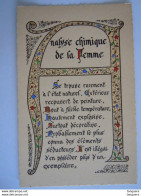 Analyse chimique
de la Femme
Se trouve rarement
à l'état naturel, Extérieur
recouvert de peinture.
Bout à faible température.
Hautement explosive.
Surtout décorative.
Probablement le plus
grand des éléments
séducteurs. Il est illégal
d'en posséder plus d'un
exemplaire.